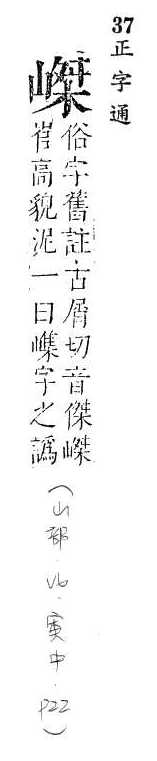 37正字通
嵥
俗字舊註古屑切音傑嵥
高貌泥一曰字之譌
(山部.V6.寅中.P22)